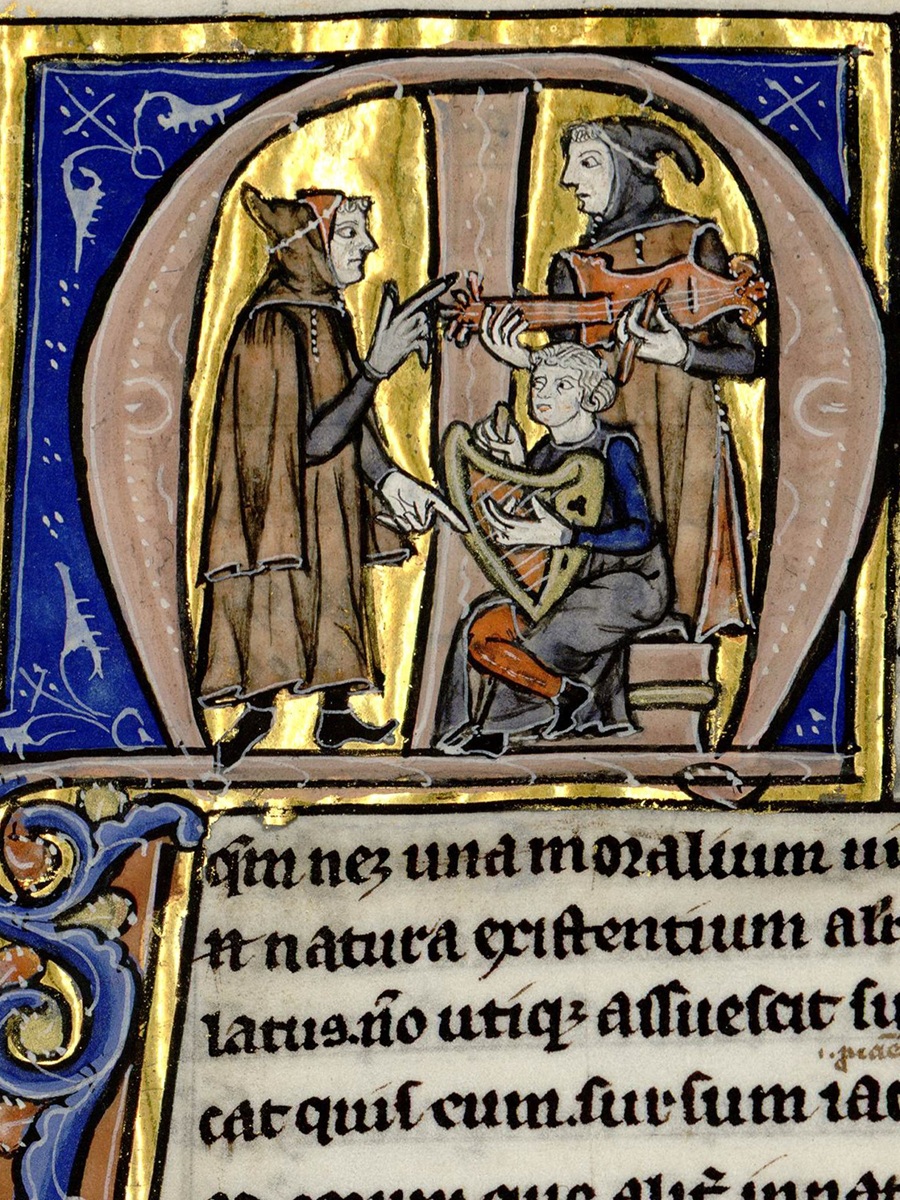 M
q̃m neqꝫ una moralium ui
natura existentium
latus. no̅ utiqꝫ assuescit su
cat quis eum. sursum iac